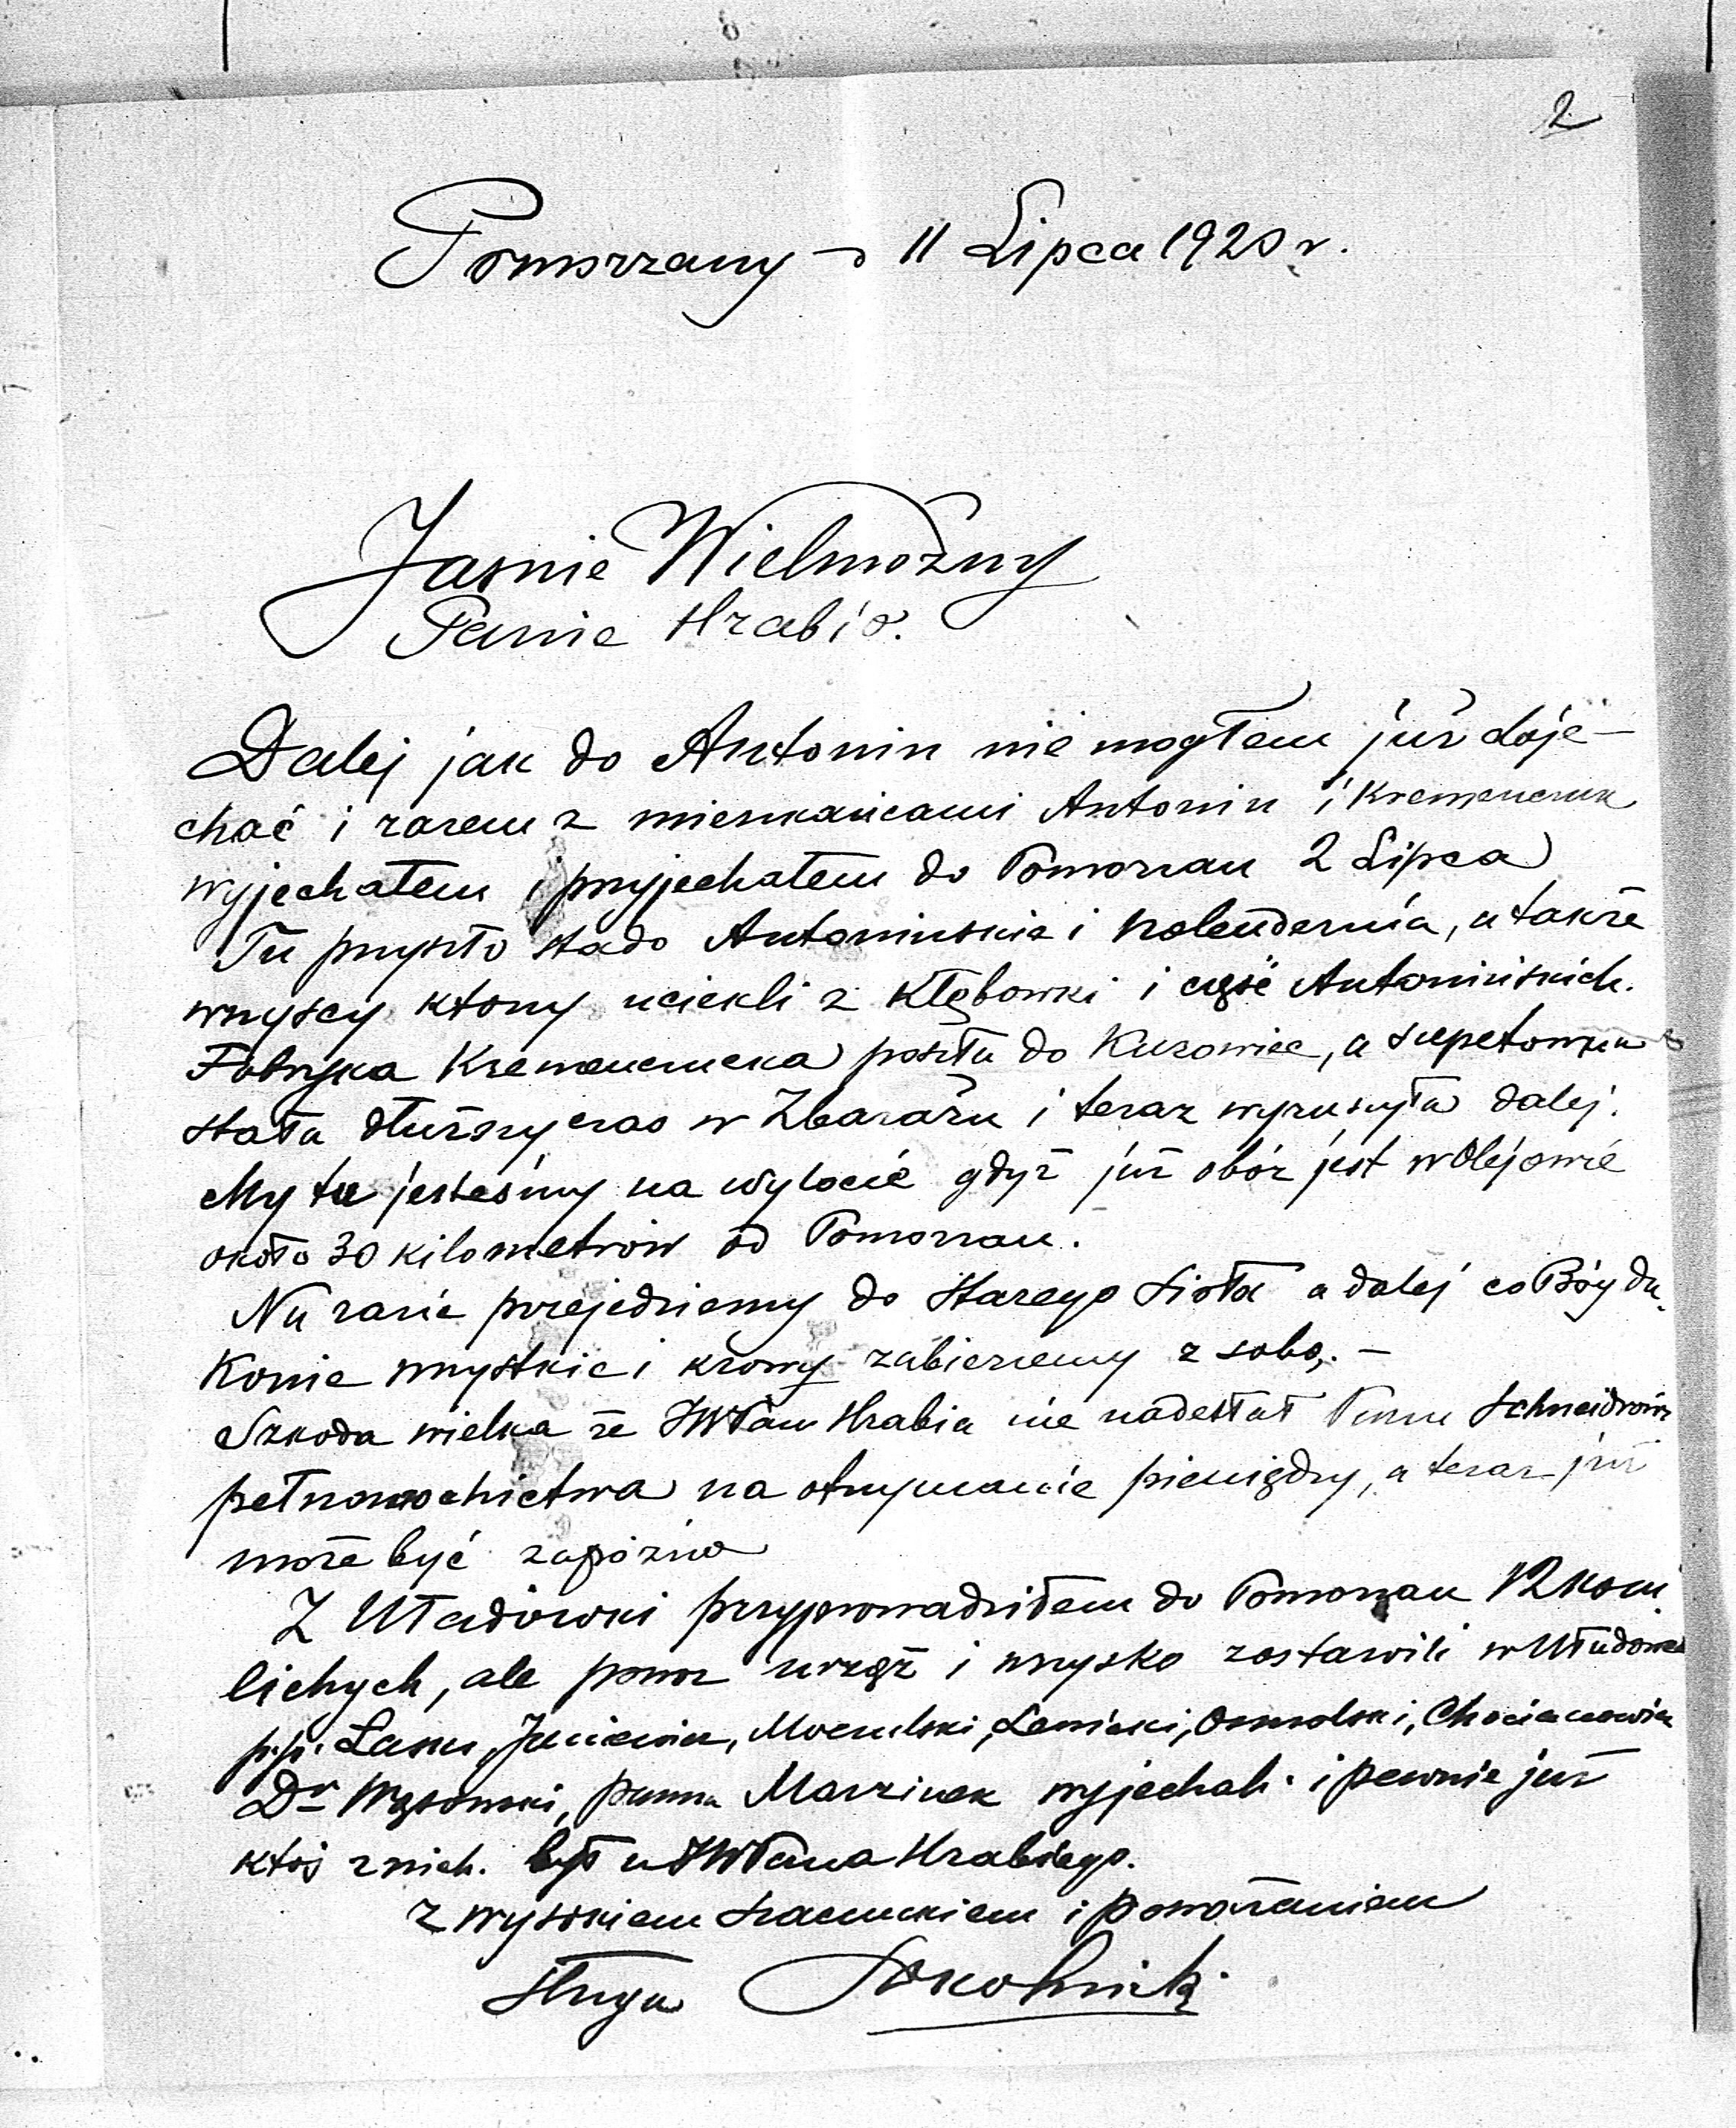 2
Pomorzany d 11 Lipca 1920 r.
Jasnie Wielmożny
Panie Hrabio.
Dalej jak do Antonin nie mogłem już doje-
chać i razem z mieszkańcami Antonin i Kremenczuk
wyjechałem i przyjechałem do Pomorzan 2 Lipca
Tu przyszło stado Antonińskie i holendernia, a także
wszyscy którzy uciekli z Kłębowki i część Antonińskich.
Fabryka Kremenczucka poszła do Kurowiec, a szepetowska
stała dłuższy czas w Zbarażu i teraz wyruszyła dalej.
My tu jesteśmy na wylocie gdyż już obóz jest w Olejowie
około 30 kilometrów od Pomorzan.
Na razie przejedziemy do Starego Sioła a dalej co Bóg da.
Konie wszystkie i krowy zabierzemy z sobą. -
Szkoda wielka że JWPan Hrabia nie nadesłał Panu
pełnomochictwa na otrzymanie pieniędzy, a teraz już
może być zapóźno
Z Uładówki przyprowadziłem do Pomorzan 12 koni
lichych, ale powoz urząż i wszysko zostawili w Uładowce
p.p. Janiewicz, Moczulski, Osmolski,
Dr Wąsowski, panna Marzinek wyjechali i pewnie już
ktoś z nich. był u JWPana Hrabiego.
z wysokiem szacunkiem i poważaniem
Sługa Sokolnicki